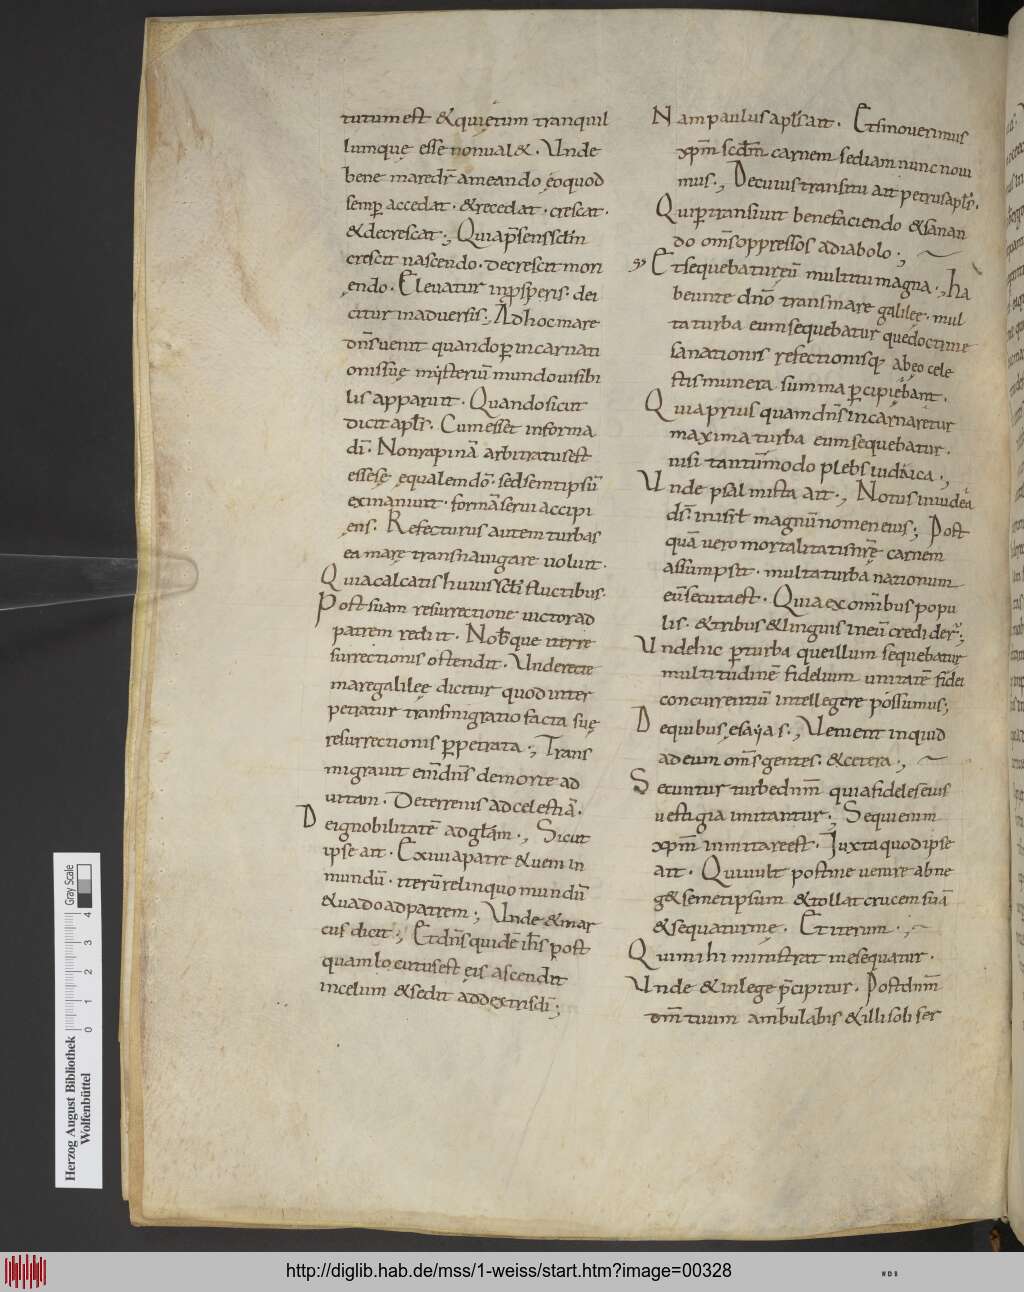 tutum est & quietum tranquil
lumque esse non ual&. Unde
bene mare dr̄ a meando eo quod
semp̄ accedat. & recedat. crescat.
& decrescat; Quia p̄sens sc̄lm
crescit nascendo. decrescit mori
endo. Eleuatur in ꝓsperis. dei
citur in aduersis; Ad hoc mare
dn̄s uenit quando ꝑ incarnati
onis suę mysteriū mundo uisibi
lis apparuit. Quando sicut
dicit apl̄s. Cum esset in forma
dī. Non rapinā arbitratus est
esse se ęqualem dō. sed semtipsū
exinaniuit. formā serui accipi
ens. Refecturus autem turbas
ea mare transnauigare uoluit.
Quia calcatis huius scl̄i fluctibus.
Post suam resurrectione uictor ad
patrem rediit. Nob̄que iter re
surrectionis ostendit. Unde recte
mare galileę dicitur quod inter
petratur transmigratio facta suę
resurrectionis ꝑpetrata; Trans
migrauit enī dn̄s de morte ad
uitam. De terrenis ad celestiā.
De ignobilitatē ad glām; Sicut
ipse ait. Exiui a patre & ueni in
mundū. iterū relinquo mundū
& uado ad patrem; Unde & mar
cus dicit; Et dn̄s quidē ih̄s post
quam locutus est eis ascendit
in celum & sedit ad dextris dī;
Nam paulus apl̄s ait. Etsi nouerimus
xp̄m scd̄m carnem sed iam nunc noui
mus; De cuius transitu ait petrus apl̄s.
Qui ꝑtransiuit benefaciendo & sanan
do om̄s oppressos a diabolo;
Et sequebatur eū multitu magna; ha
beunte dnō trans mare galileę. mul
ta turba eum sequebatur que doctrine
sanationis refectionisq; ab eo cele
stis munera summa ꝑcipiebant.
Quia prius quam dn̄s incarnaretur
maxima turba eum sequebatur.
nisi tantūmodo plebs iudaica;
Unde psalmista ait; Notus in iudea
ds̄. in isrl̄ magnū nomen eius; Post
quā uero mortalitatis nr̄ę carnem
assumpsit. multa turba nationum
eū secuta est. Quia ex om̄ibus popu
lis. & tribus & linguis in eū crediderī;
Unde hic ꝑ turba que illum sequebatur
multitudinē fidelium unitatē fidei
concurrentiū intellegere possumus;
De quibus esayas; Uenient inquid
ad eum om̄s gentes. & cetera;
Secuntur turbe dnm̄ quia fideles eius
uestigia imitantur; Sequi enim
xp̄m inmitare est. Iuxta quod ipse
ait. Qui uult post me uenire abne
g& semetipsum & tollat crucem suā
& sequatur me. Et iterum.
Qui mihi ministrat me sequatur.
Unde & in lege p̄cipitur. Post dnm̄
dm̄ tuum ambulabis & illi soli ser
Herzog August Bibliothek
Wolfenbüttel
0 1 2 3 4
Gray Scale
http://diglib.hab.de/mss/1-weiss/start.htm?image=00328